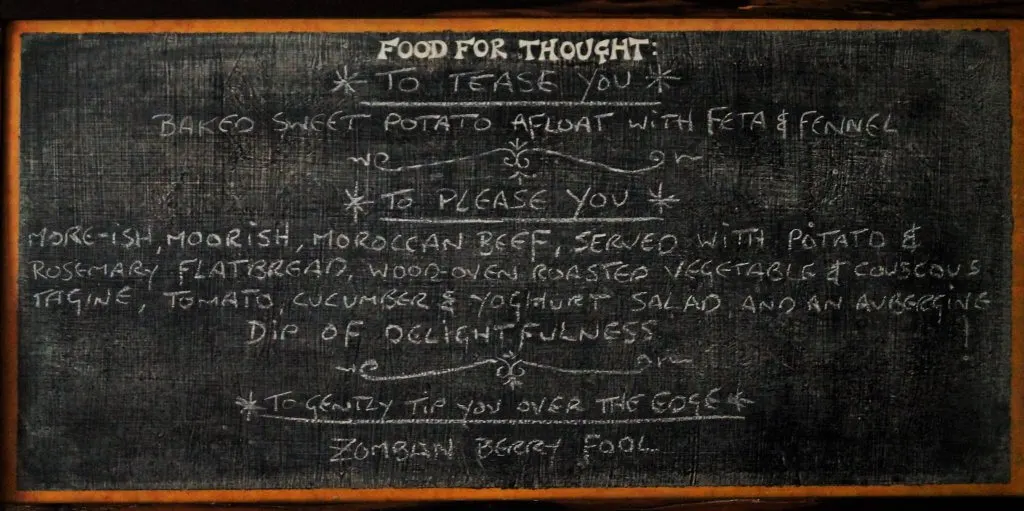 FOOD FOR THOUGHT:
* TO TEASE YOU *
BAKED SWEET POTATO AFLOAT WITH FETA & FENNEL
* TO PLEASE YOU *
MORE-ISH, MOORISH, MOROCCAN BEEF, SERVED WITH POTATO &
ROSEMARY FLATBREAD, WOOD-OVEN ROASTED VEGETABLE & COUSCOUS
TAGINE, TOMATO, CUCUMBER & YOGHURT SALAD, AND AN AUBERGINE
DIP OF DELIGHTFULNESS !
* TO GENTLY TIP YOU OVER THE EDGE *
ZOMBAN BERRY FOOL..